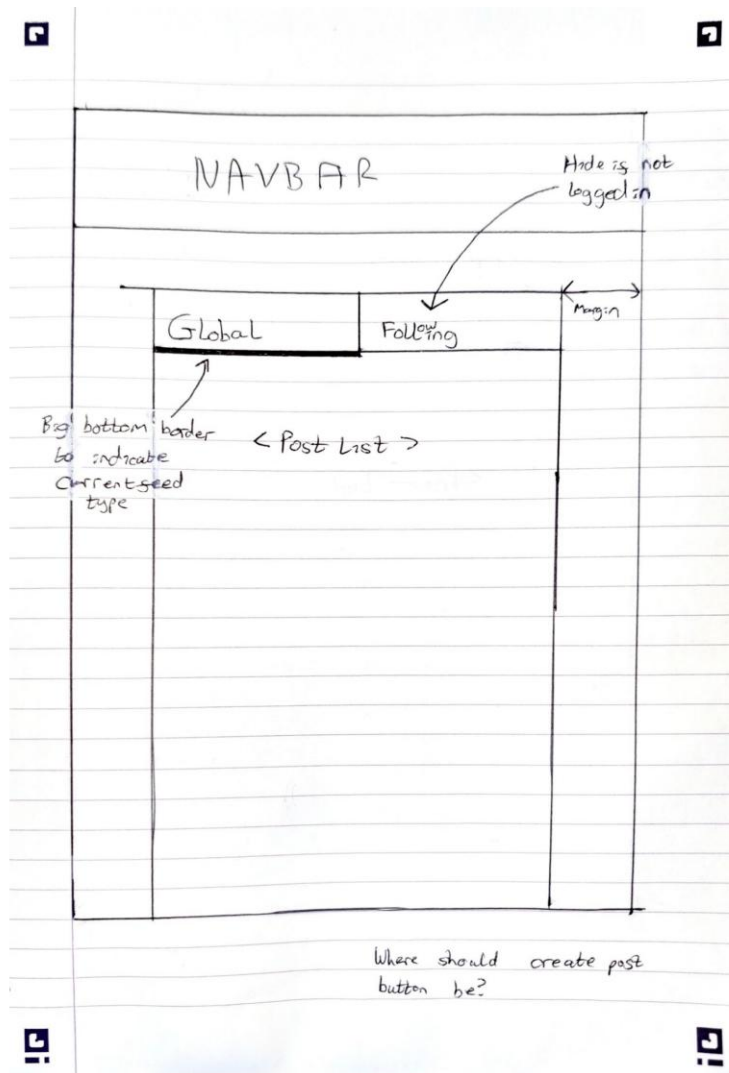 NAVBAR
Hide is not
logged in
Global
Following
Margin
Big bottom border
to indicate
Current feed
type
< Post List >
Where should create post
button be?